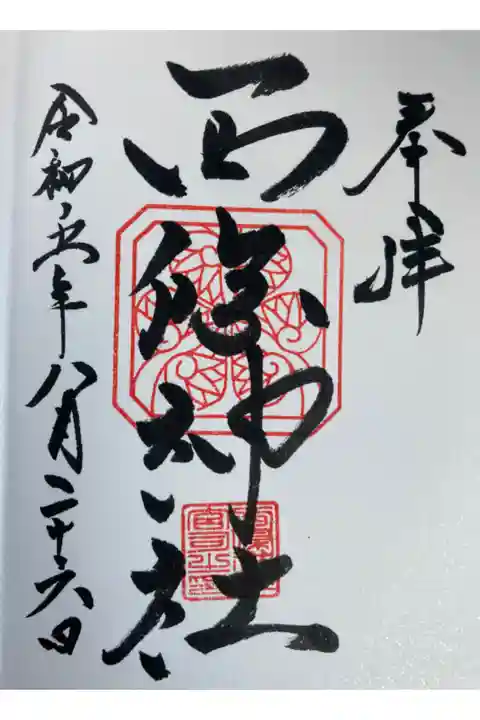 奉拝
西
神社
令和五年八月二十六日